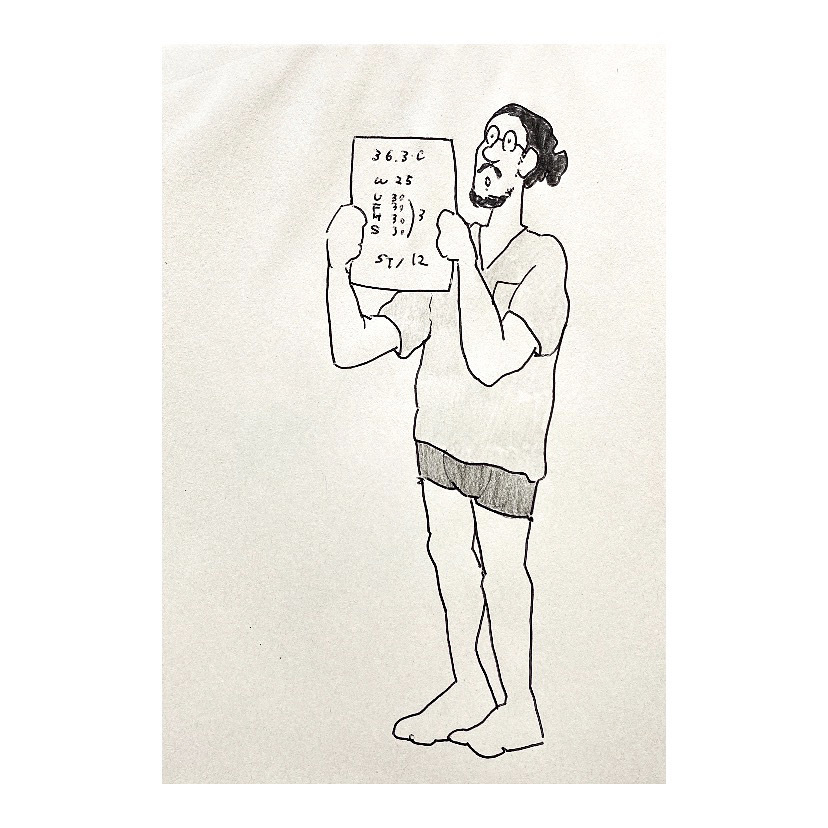 36.3.C
W 25
U 30
F 30
H 30 ) 3
S 30
ST/12